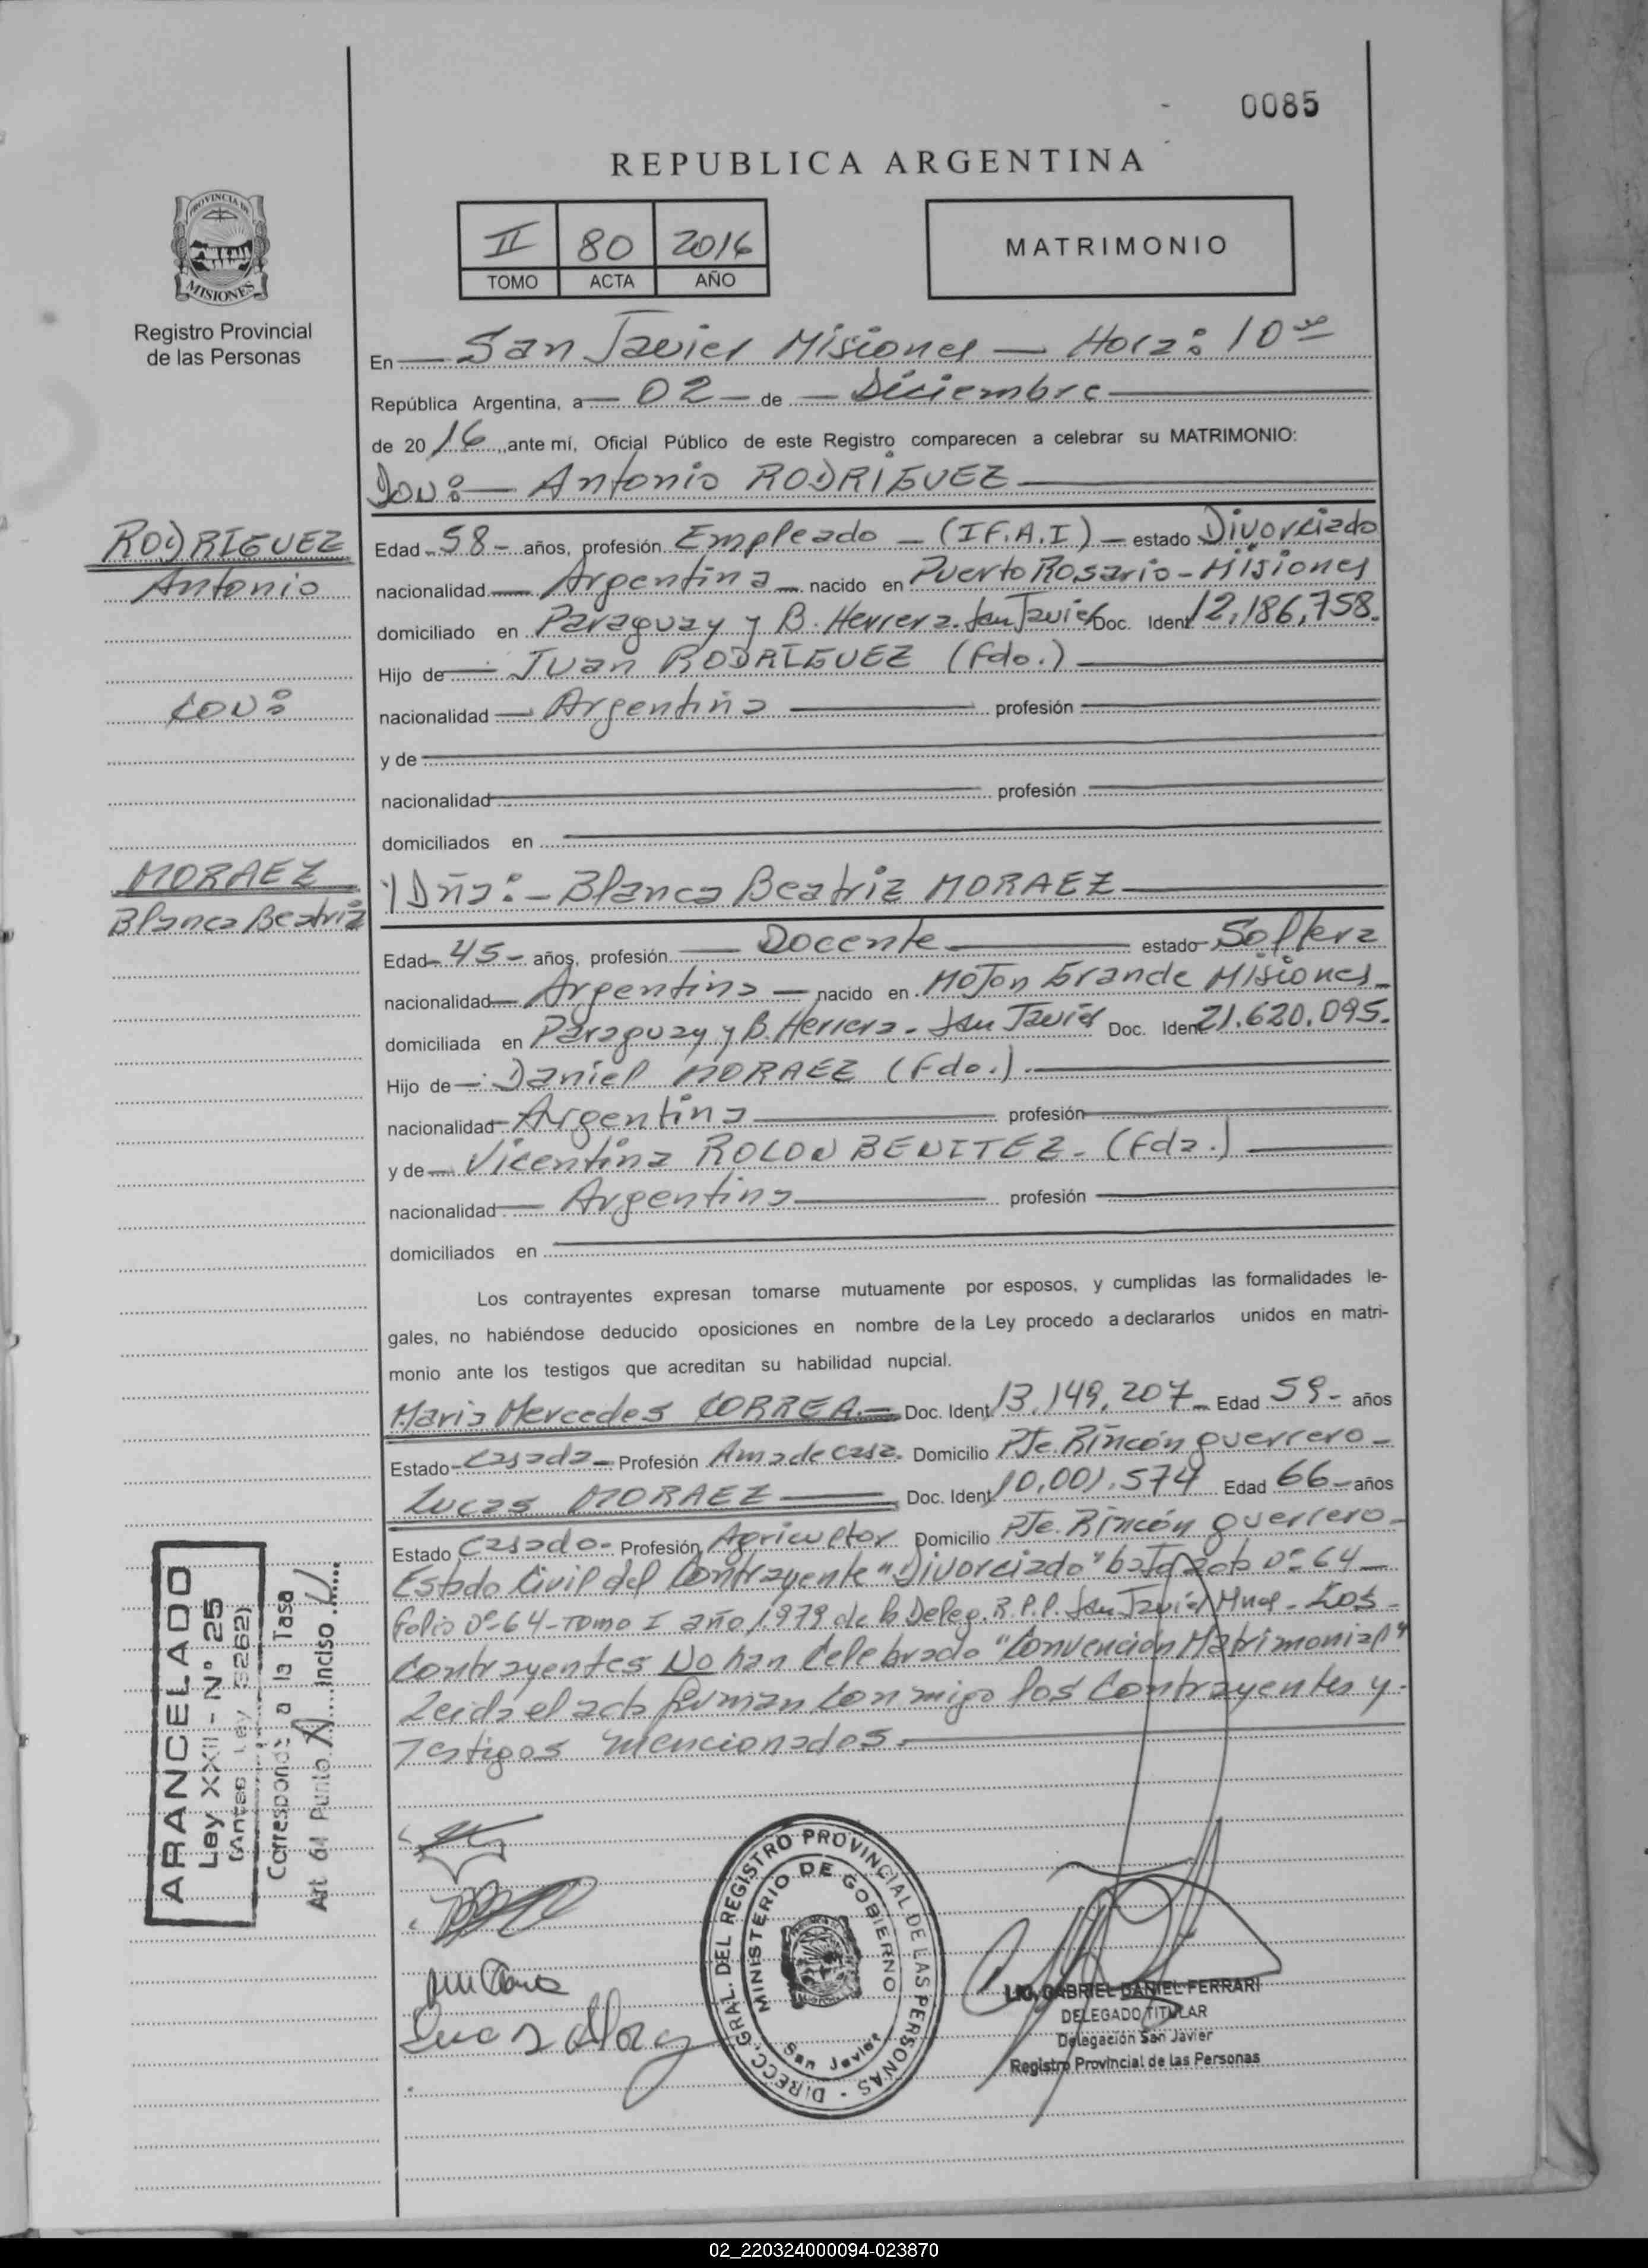 0085
REPUBLICA ARGENTINA
PROVINCIA DE
MISIONES
Registro Provincial
de las Personas
II 80 2016
TOMO ACTA AÑO
MATRIMONIO
En San Javier Misiones Hora: 10
República Argentina, a 02 de Diciembre
de 2016, ante mí, Oficial Público de este Registro comparecen a celebrar su MATRIMONIO:
Don: Antonio RODRIGUEZ
RODRIGUEZ
Antonio
con:
MORAEZ
Blanca Beatriz
Edad 58 años, profesión Empleado (I.F.A.I) estado Divorciado
nacionalidad Argentina nacido en Puerto Rosario - Misiones
domiciliado en Paraguay y B. Herrera. San Javier Doc. Ident 12,186,758.
Hijo de Juan RODRIGUEZ (fdo.)
nacionalidad Argentina profesión
y de
nacionalidad profesión
domiciliados en
Y Dña: - Blanca Beatriz MORAEZ
Edad 45 años, profesión Docente estado Soltera
nacionalidad Argentina nacido en Mojon Grande Misiones
domiciliada en Paraguay y B. Herrera - San Javier Doc. Ident 21.620.095.
Hijo de Daniel MORAEZ (Fdo.)
nacionalidad Argentina profesión
y de Vicentina ROLON BENITEZ. (Fda.)
nacionalidad Argentina profesión
domiciliados en
Los contrayentes expresan tomarse mutuamente por esposos, y cumplidas las formalidades le-
gales, no habiéndose deducido oposiciones en nombre de la Ley procedo a declararlos unidos en matri-
monio ante los testigos que acreditan su habilidad nupcial.
Maria Mercedes CORREA Doc. Ident 13.149,207 Edad 59 años
Estado Casada Profesión Ama de casa. Domicilio Pje. Rincón guerrero
Lucas MORAEZ Doc. Ident 10.001.574 Edad 66 años
Estado Casado Profesión Agricultor Domicilio Pje. Rincón guerrero
Estado Civil del Contrayente "Divorciado" bajo acta nº 64
folio nº 64 - Tomo I año 1979 de la Deleg. R.P.P. San Javier Mnes - Los
Contrayentes No han Celebrado "Convención Matrimonial"
Leida el acta firman conmigo los Contrayentes y
Testigos mencionados.
ARANCELADO
Ley XXII - Nº 25
(Antes Ley 3262)
Corresponde a la Tasa
Art 64 Punto A Inciso
DIRECC. GRAL. DEL REGISTRO PROVINCIAL DE LAS PERSONAS -
MINISTERIO DE GOBIERNO
San Javier
LIC. GABRIEL DANIEL FERRARI
DELEGADO TITULAR
Delegación San Javier
Registro Provincial de las Personas
02_220324000094-023870